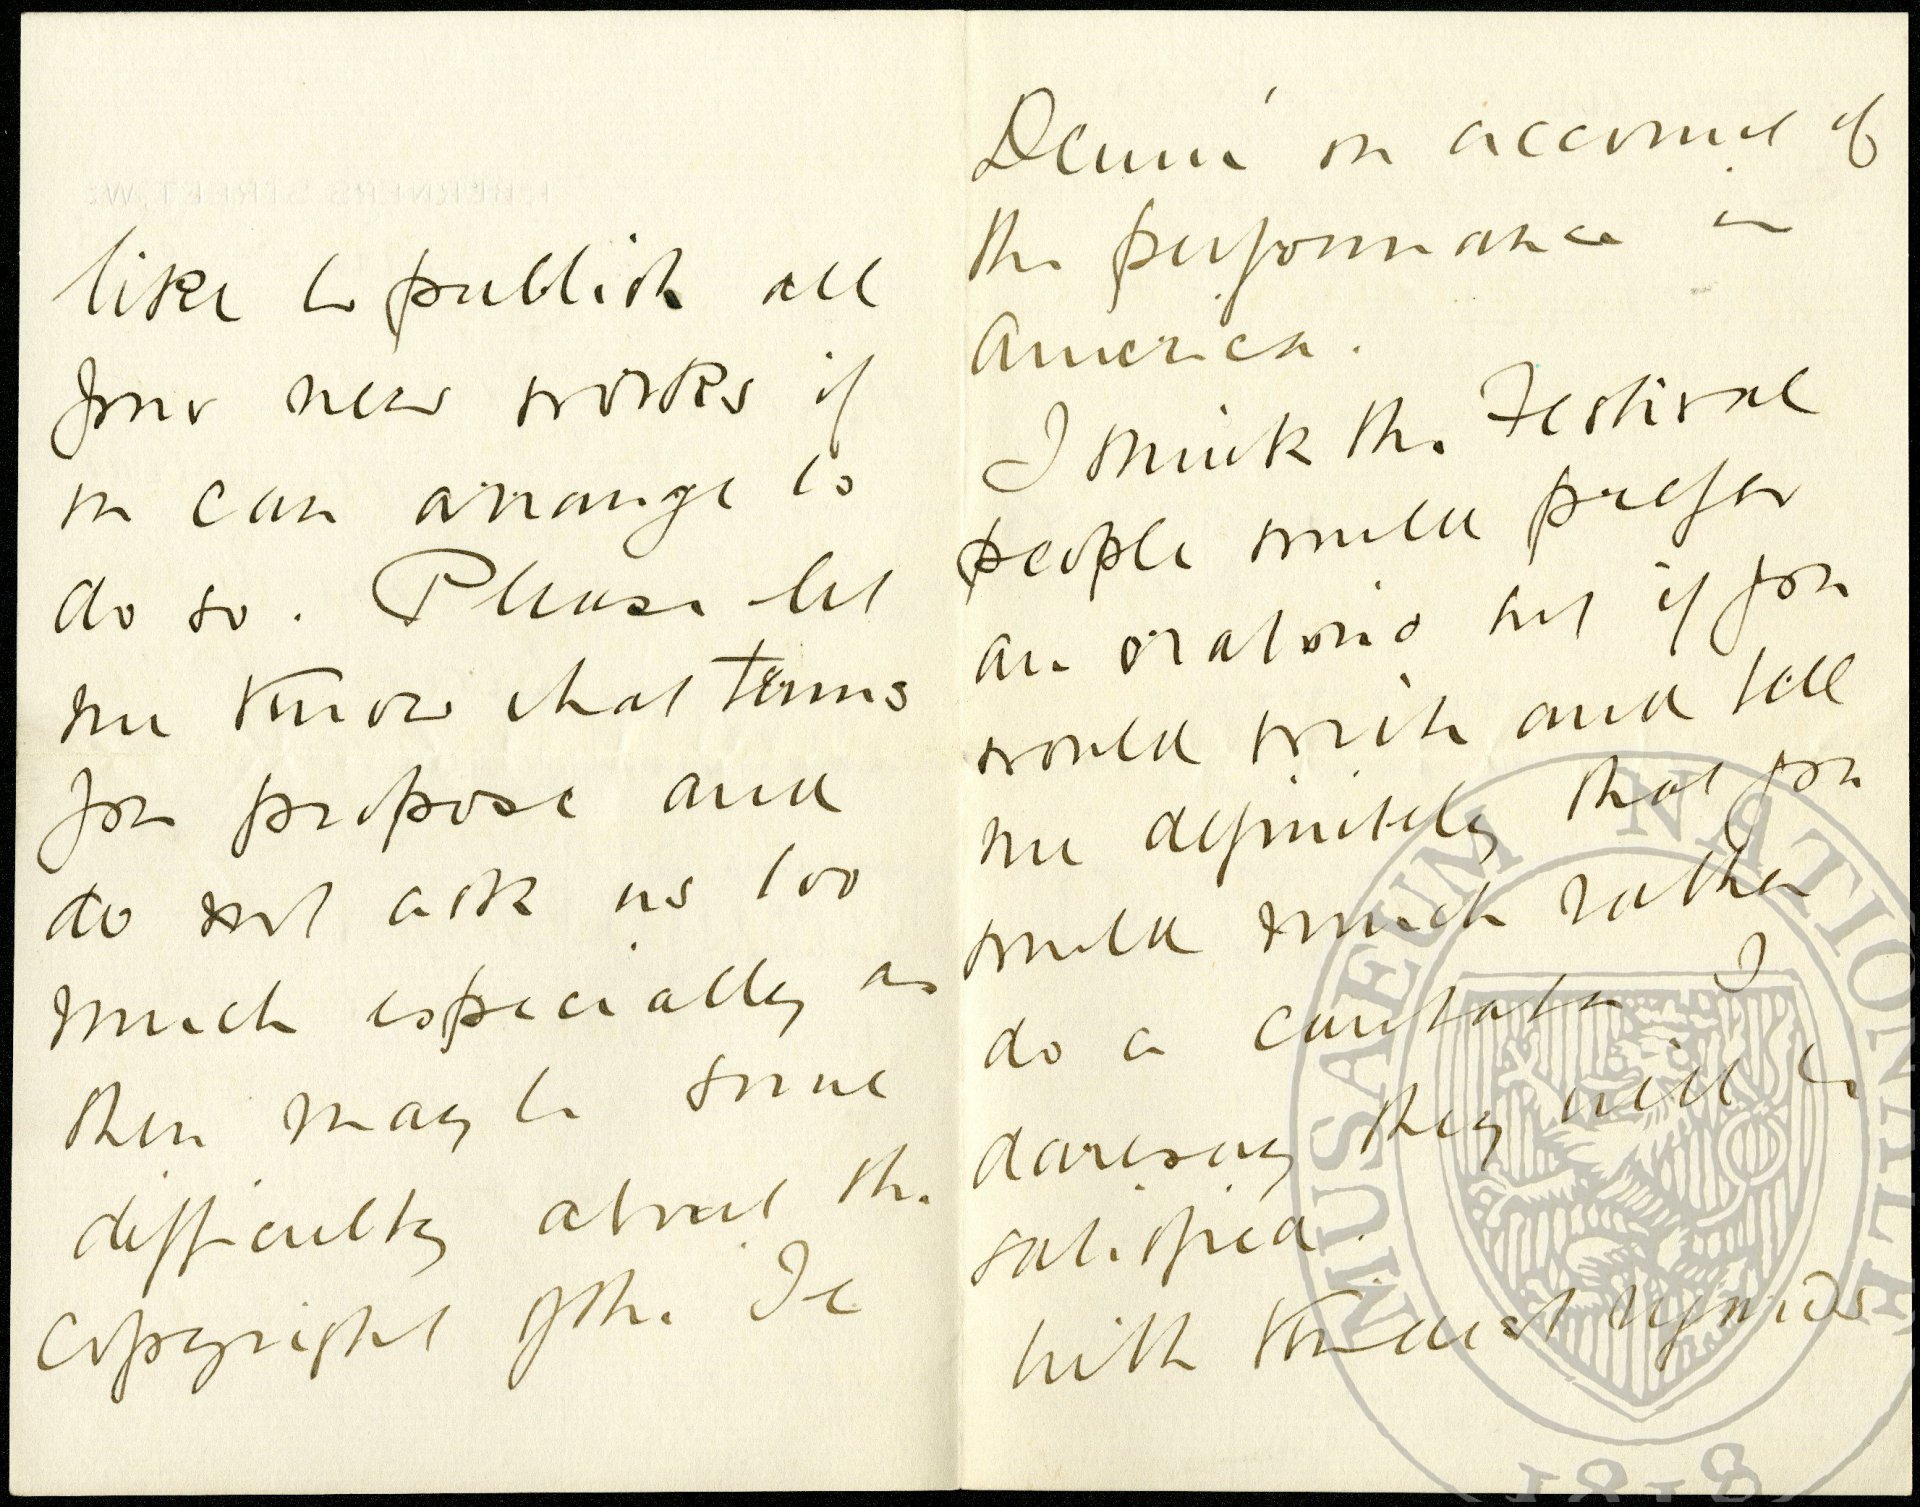 1, BERNERS STREET, W.
like to publish all
your new works if
we can arrange to
do so. Please let
me know what terms
you propose and
do not ask us too
much especially as
there may be some
difficulty about the
copyright of the Te
Deum' on account of
the performance in
America.
I think the Festival
people would prefer
an oratorio but if you
would write and tell
me definitely that you
would much rather
do a cantata I
daresay they will be
satisfied.
With kindest regards
MUSAEUM NATIONALE
1818